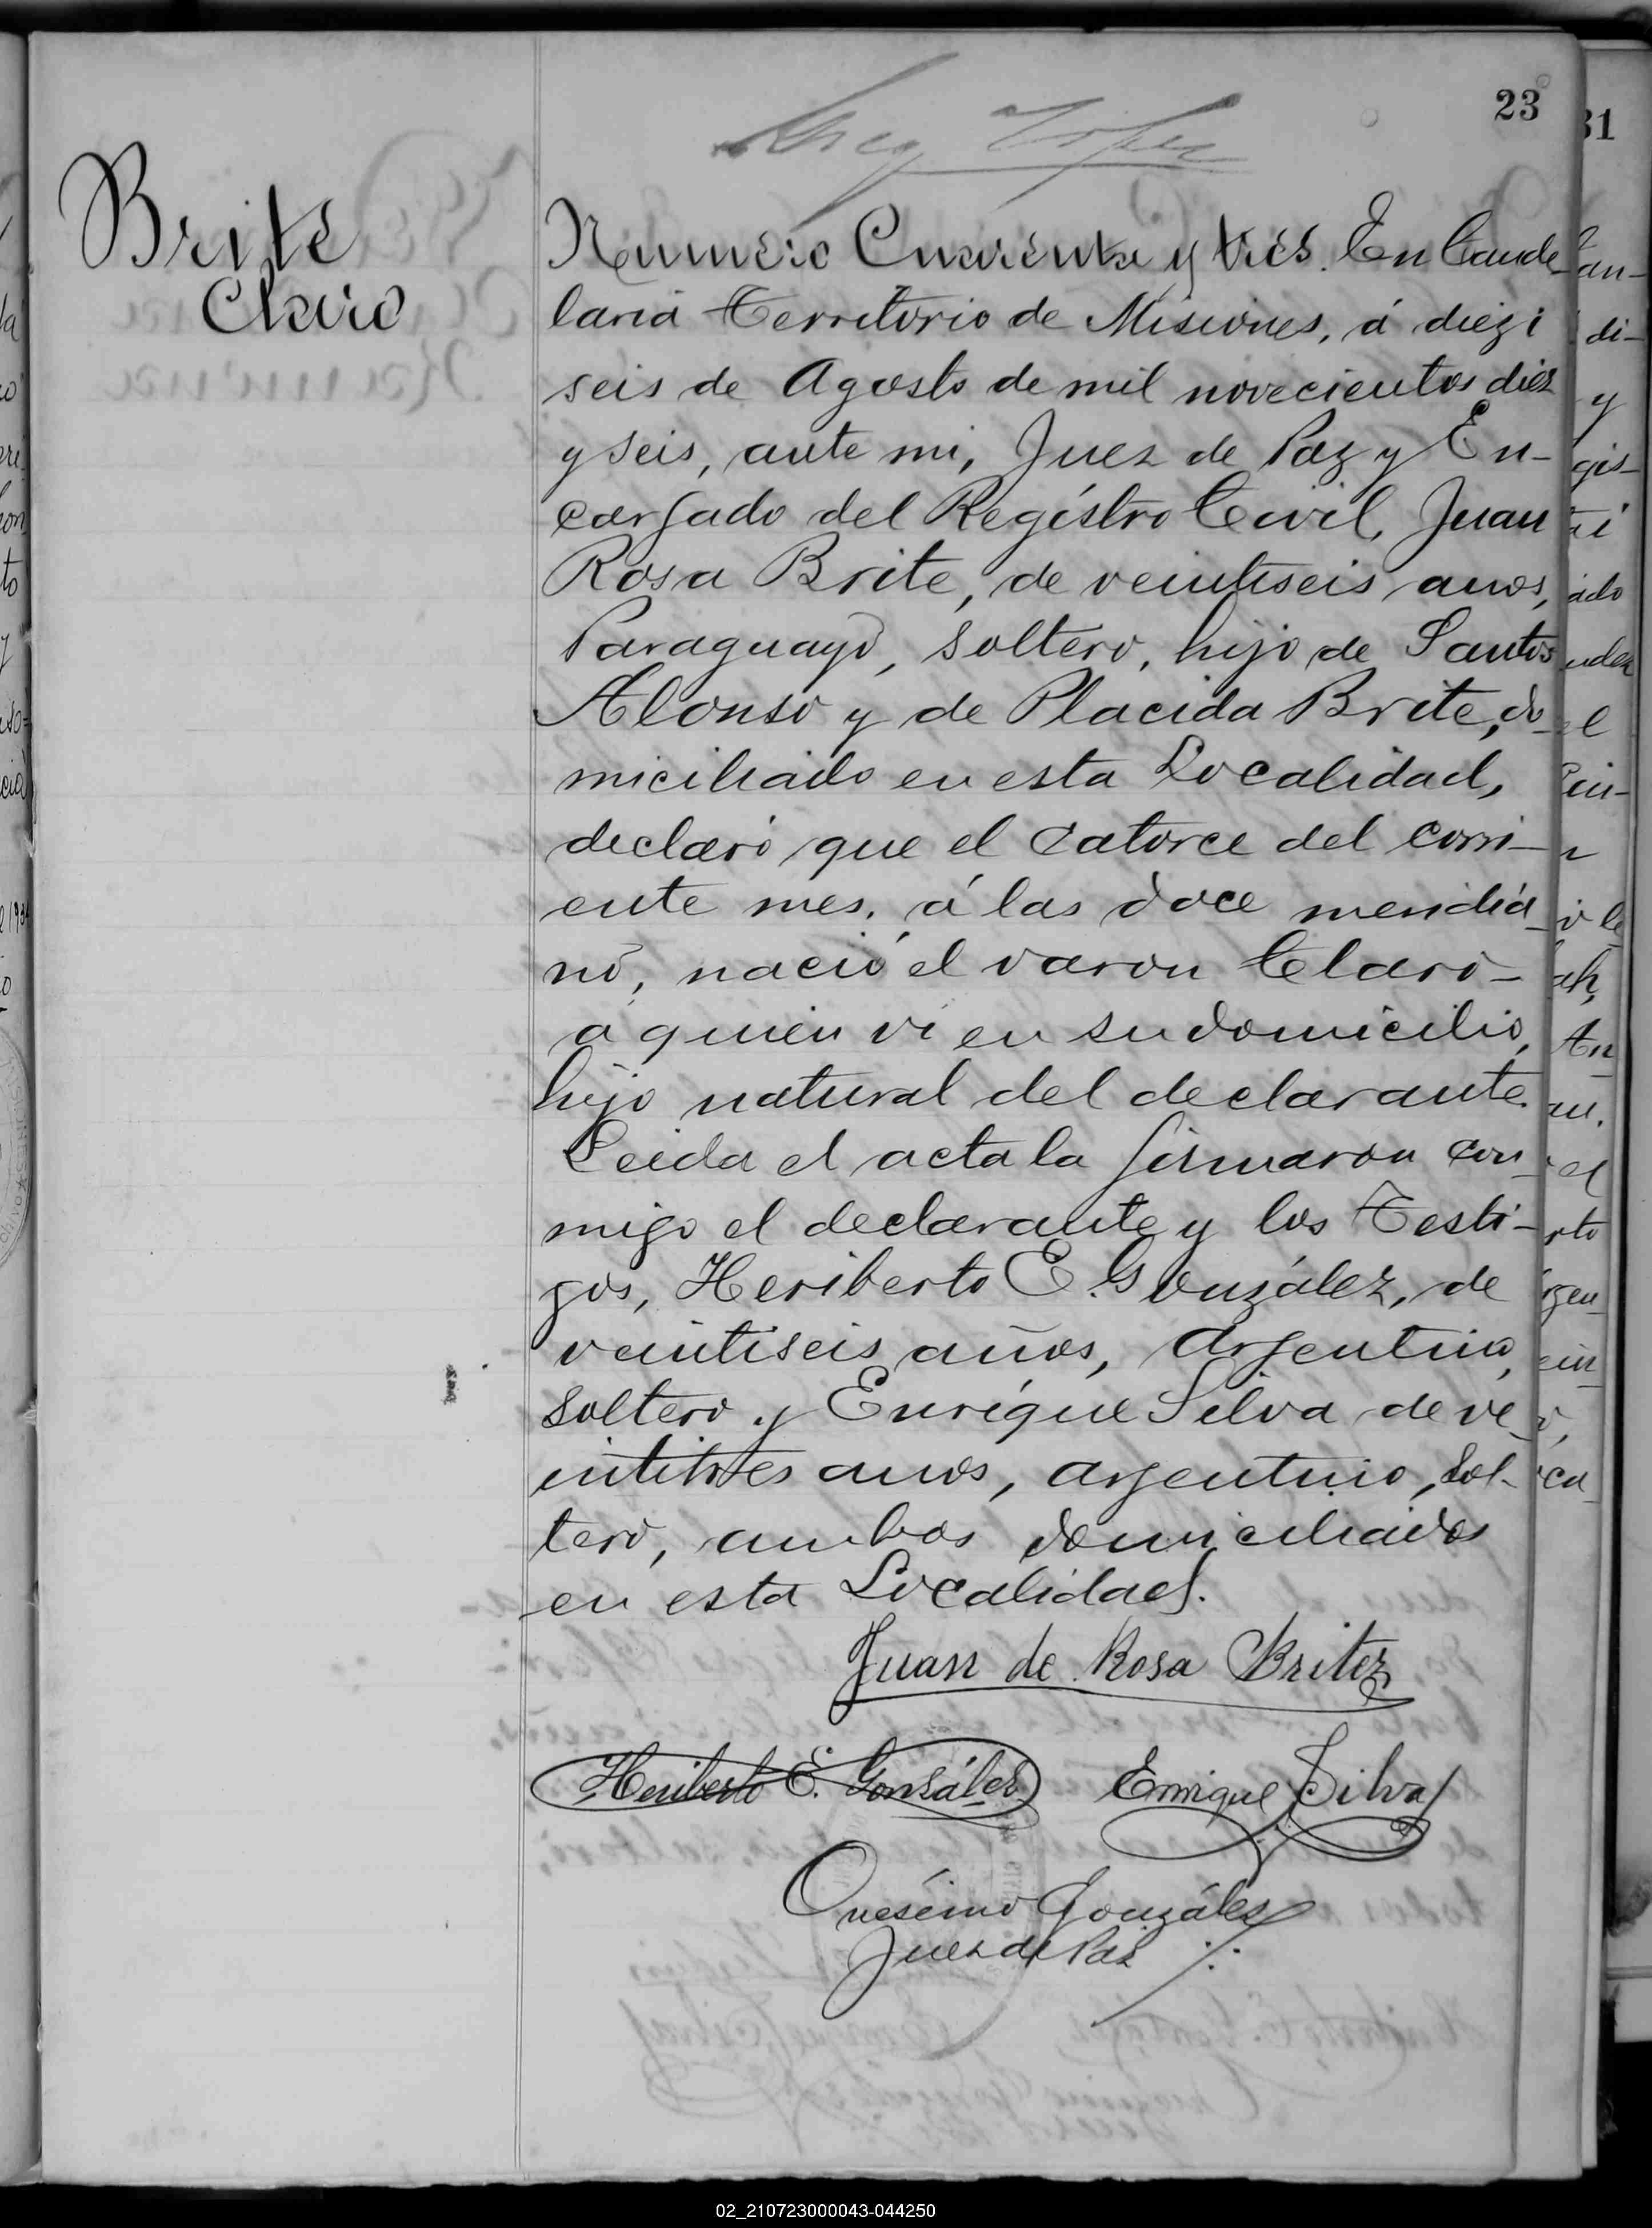 23
Brite
Claro
Número Cuarenta y tres. En Cande-
laria Territorio de Misiones, á diez i
seis de Agosto de mil novecientos diez
y seis, ante mi, Juez de Paz y En-
cargado del Registro Civil, Juan
Rosa Brite, de veintiseis anos,
Paraguayo, soltero, hijo de Santos
Alonso y de Placida Brite, do-
miciliado en esta Localidad,
declaró que el catorce del corri-
ente mes, á las doce meridia-
no, nació el varon Claro-
a quien vi en su domicilio,
hijo natural del declarante.
Leida el acta la firmaron con-
migo el declarante y los Testi-
gos, Heriberto E. González, de
veintiseis años, Argentino,
soltero y Enrique Silva de ve-
intitres anos, argentino, sol-
tero, ambos domiciliados
en esta Localidad.
Juan de Rosa Britez
Heriberto E. Gonsález Enrique Silva
Onésimo González
Juez de Paz
31
an-
di-
y
gis-
ado
el
An
el
rto
02_210723000043-044250